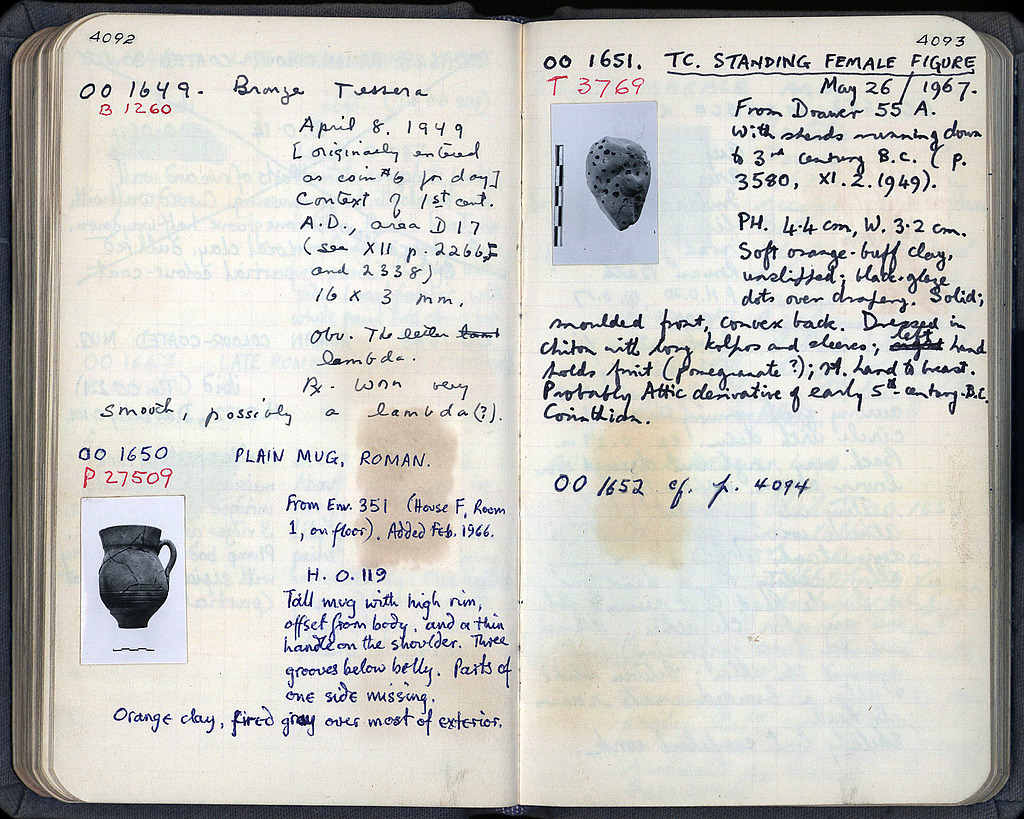 4092
OO 1649. Bronze Tessera
B 1260
April 8, 1949
[originally entered
as coin #6 for day]
Context of 1st cent.
A.D., area D 17
(see XII p. 2266
and 2338)
16 x 3 mm.
Obv. The letter
lambda.
Rx. Worn very
smooth, possibly a lambda(?).
OO 1650 PLAIN MUG, ROMAN.
P 27509
From Env. 351 (House F, Room
1, on floor). Added Feb. 1966.
H. 0.119
Tall mug with high rim,
offset from body, and a thin
handle on the shoulder. Three
grooves below belly. Parts of
one side missing.
Orange clay, fired gray over most of exterior.
4093
OO 1651. TC. STANDING FEMALE FIGURE
T 3769
May 26 / 1967.
From Drawer 55 A.
With sherds running down
to 3rd century B.C. (p.
3580, XI.2.1949).
PH. 4.4 cm, W. 3.2 cm.
Soft orange-buff clay,
unslipped; black-glaze
dots over drapery. Solid;
moulded front, convex back. Dressed in
chiton with long kolpos and sleeves; left hand
holds fruit (pomegranate?); rt. hand to breast.
Probably Attic derivative of early 5th century B.C.
Corinthian.
OO 1652 cf. p. 4094